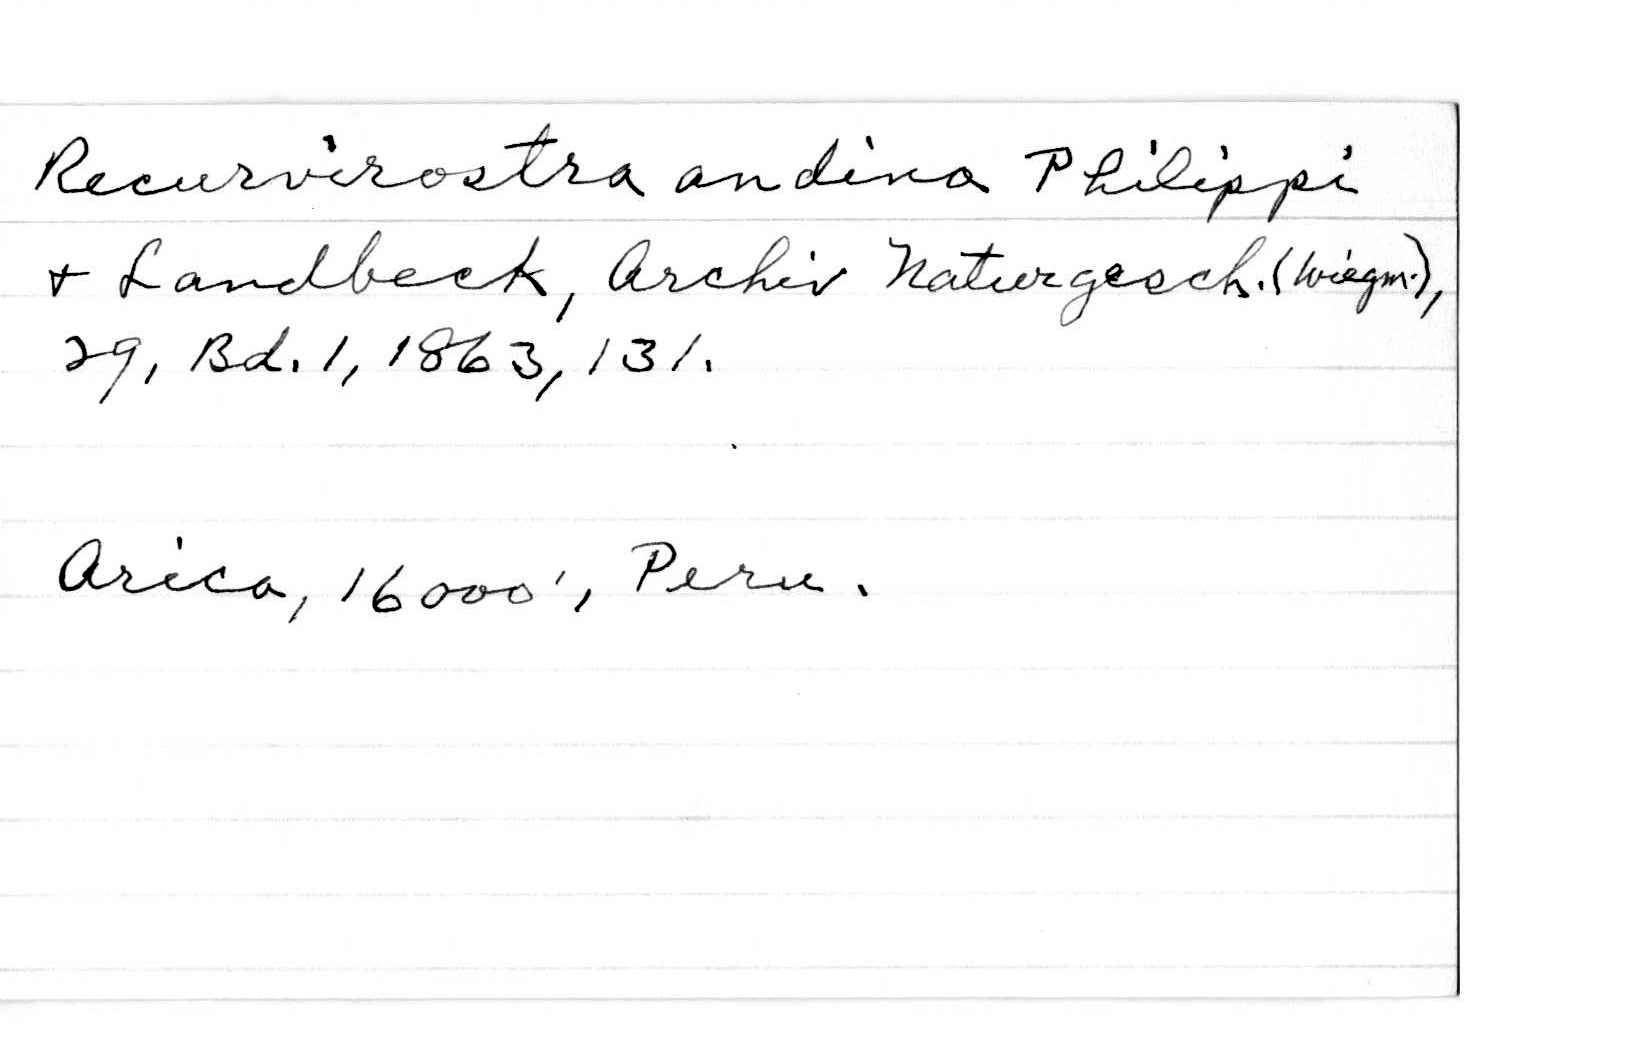 Recurvirostra andina Philippi
+ Landbeck, Archiv Naturgesch. (Wiegm.),
29, Bd. 1, 1863, 131.
Arica, 16000', Peru.